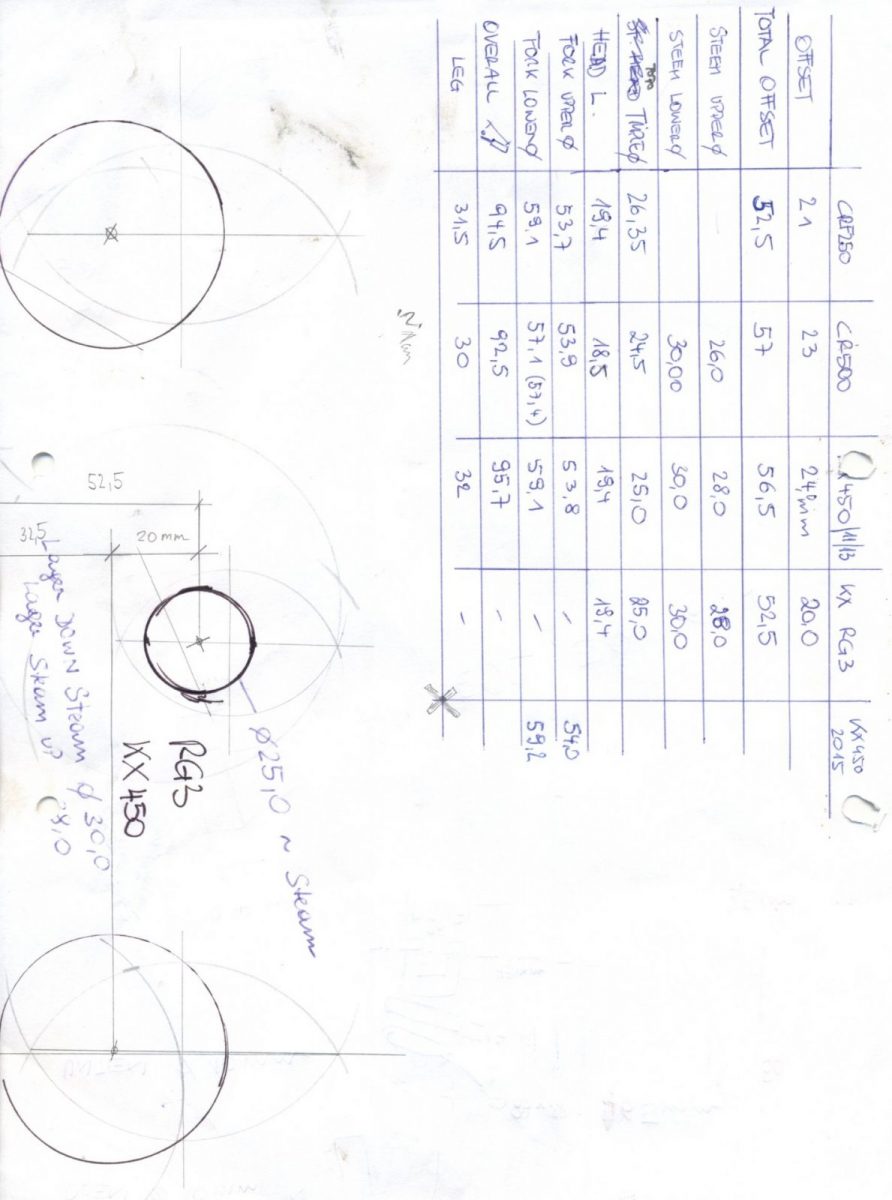 CRF250 CR500 450/11/13 KX RG3 KX450
2015
OFFSET 21 23 24,0mm 20,0
TOTAL OFFSET 52,5 57 56,5 52,5
STEEM UPPER Ø – 26,0 28,0 28,0
STEEM LOWER Ø 30,00 30,0 30,0
26,35 24,5 25,0 25,0
HEAD L. 19,4 18,5 19,4 19,4
FORK UPPER Ø 53,7 53,9 53,8 – 54,0
FORK LOWER Ø 59,1 57,1 (57,4) 59,1 – 59,2
OVERALL 94,5 92,5 95,7 –
LEG 31,5 30 32 –
Ø25,0 ~ Steam
RG3
KX450
52,5
20 mm
32,5
Larger DOWN Steam Ø 30,0
Larger Steam UP